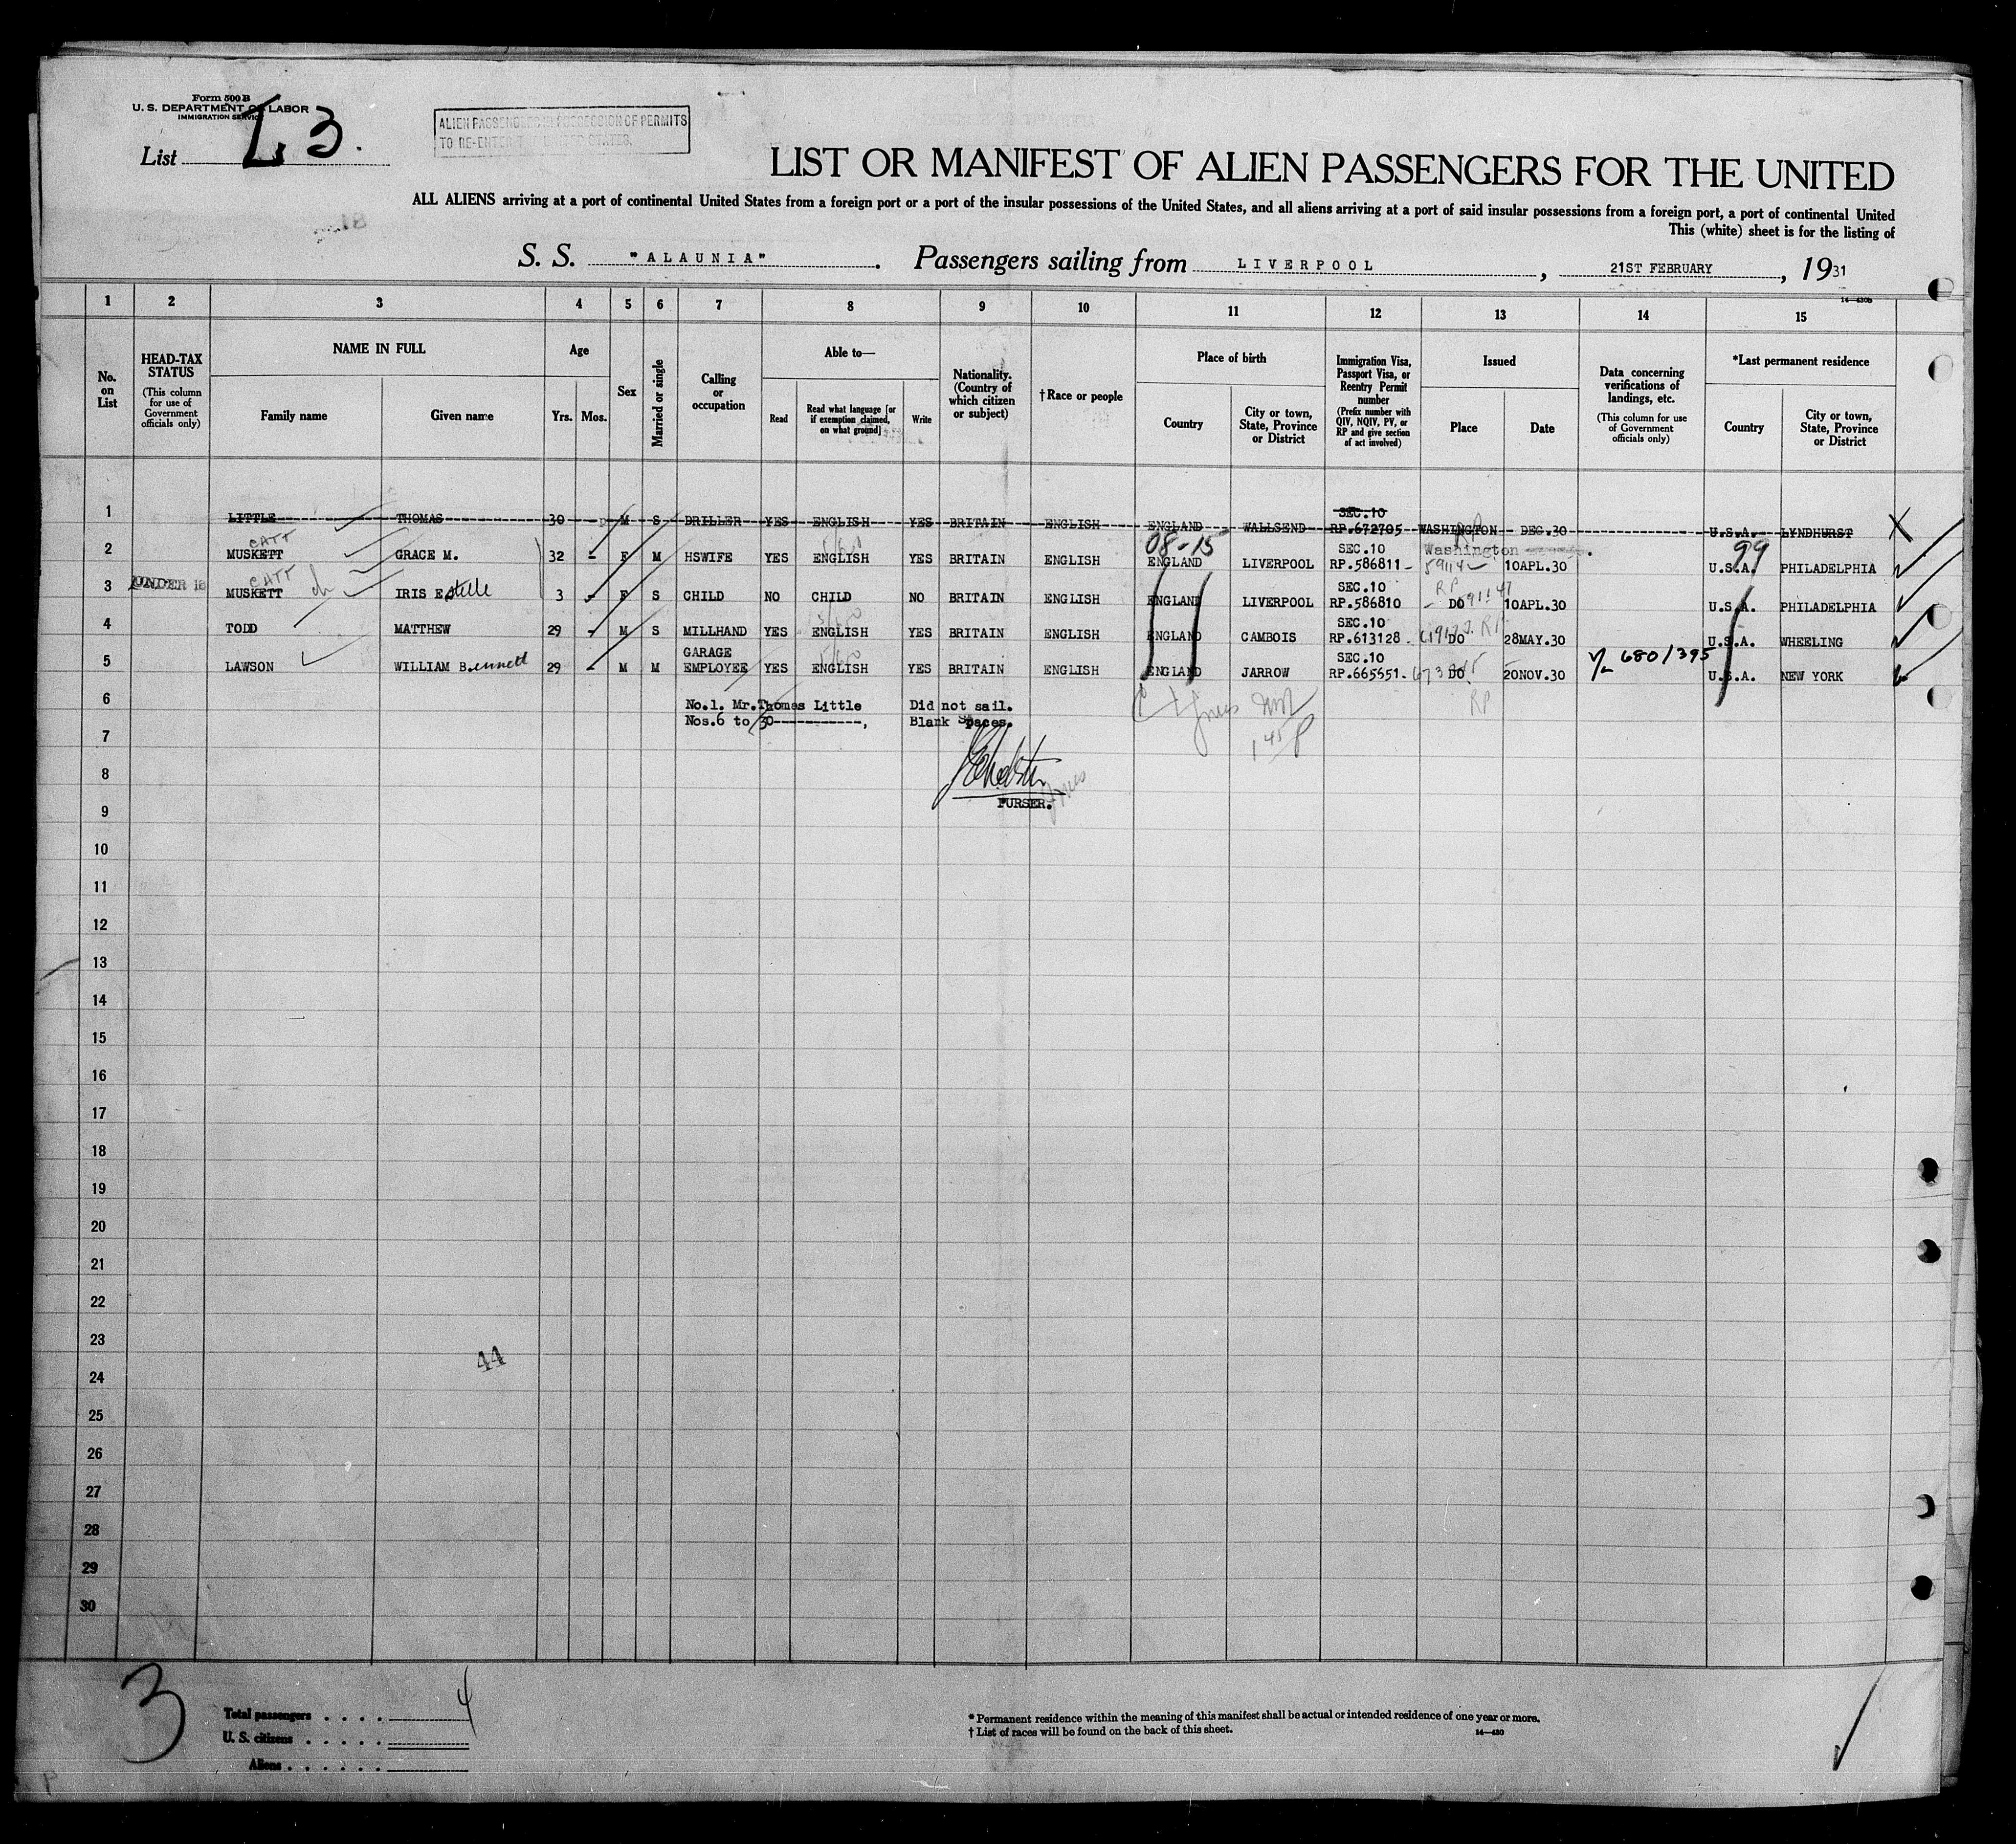 Form 500 B
U. S. DEPARTMENT OF LABOR
IMMIGRATION SERVICE
List L 3.
ALIEN PASSENGERS IN POSSESSION OF PERMITS
TO RE-ENTER THE UNITED STATES.
LIST OR MANIFEST OF ALIEN PASSENGERS FOR THE UNITED
ALL ALIENS arriving at a port of continental United States from a foreign port or a port of the insular possessions of the United States, and all aliens arriving at a port of said insular possessions from a foreign port, a port of continental United
This (white) sheet is for the listing of
S. S. "ALAUNIA". Passengers sailing from LIVERPOOL, 21ST FEBRUARY, 1931
14—430b
1 2 3 4 5 6 7 8 9 10 11 12 13 14 15
No. on List
HEAD-TAX STATUS (This column for use of Government officials only)
NAME IN FULL
Family name Given name
Age
Yrs. Mos.
Sex
Married or single
Calling or occupation
Able to—
Read Read what language [or if exemption claimed, on what ground] Write
Nationality. (Country of which citizen or subject)
† Race or people
Place of birth
Country City or town, State, Province or District
Immigration Visa, Passport Visa, or Reentry Permit number (Prefix number with QIV, NQIV, PV, or RP and give section of act involved)
Issued
Place Date
Data concerning verifications of landings, etc. (This column for use of Government officials only)
*Last permanent residence
Country City or town, State, Province or District
SEC.10
1 LITTLE THOMAS 30 - M S DRILLER YES ENGLISH YES BRITAIN ENGLISH ENGLAND WALLSEND RP.672705 WASHINGTON DEC.30 U.S.A. LYNDHURST X
CATT 08-15 SEC.10 Washington 99
2 MUSKETT GRACE M. 32 - F M HSWIFE YES ENGLISH YES BRITAIN ENGLISH ENGLAND LIVERPOOL RP.586811 10APL.30 U.S.A. PHILADELPHIA
CATT SEC.10 RP
3 UNDER 16 MUSKETT IRIS Estelle 3 - F S CHILD NO CHILD NO BRITAIN ENGLISH ENGLAND LIVERPOOL RP.586810 DO 10APL.30 U.S.A. PHILADELPHIA
SEC.10
4 TODD MATTHEW 29 - M S MILLHAND YES ENGLISH YES BRITAIN ENGLISH ENGLAND CAMBOIS RP.613128 DO RP 28MAY.30 U.S.A. WHEELING
GARAGE SEC.10 680/395
5 LAWSON WILLIAM Bennett 29 - M M EMPLOYEE YES ENGLISH YES BRITAIN ENGLISH ENGLAND JARROW RP.665551 DO 20NOV.30 U.S.A. NEW YORK
6 No.1. Mr.Thomas Little Did not sail. RP
Nos.6 to 30-----------, Blank Spaces.
7
8
PURSER.
9
10
11
12
13
14
15
16
17
18
19
20
21
22
23
44
24
25
26
27
28
29
30
3
Total passengers . . . . 4
U. S. citizens . . . . .
Aliens . . . . . .
* Permanent residence within the meaning of this manifest shall be actual or intended residence of one year or more.
† List of races will be found on the back of this sheet. 14—430